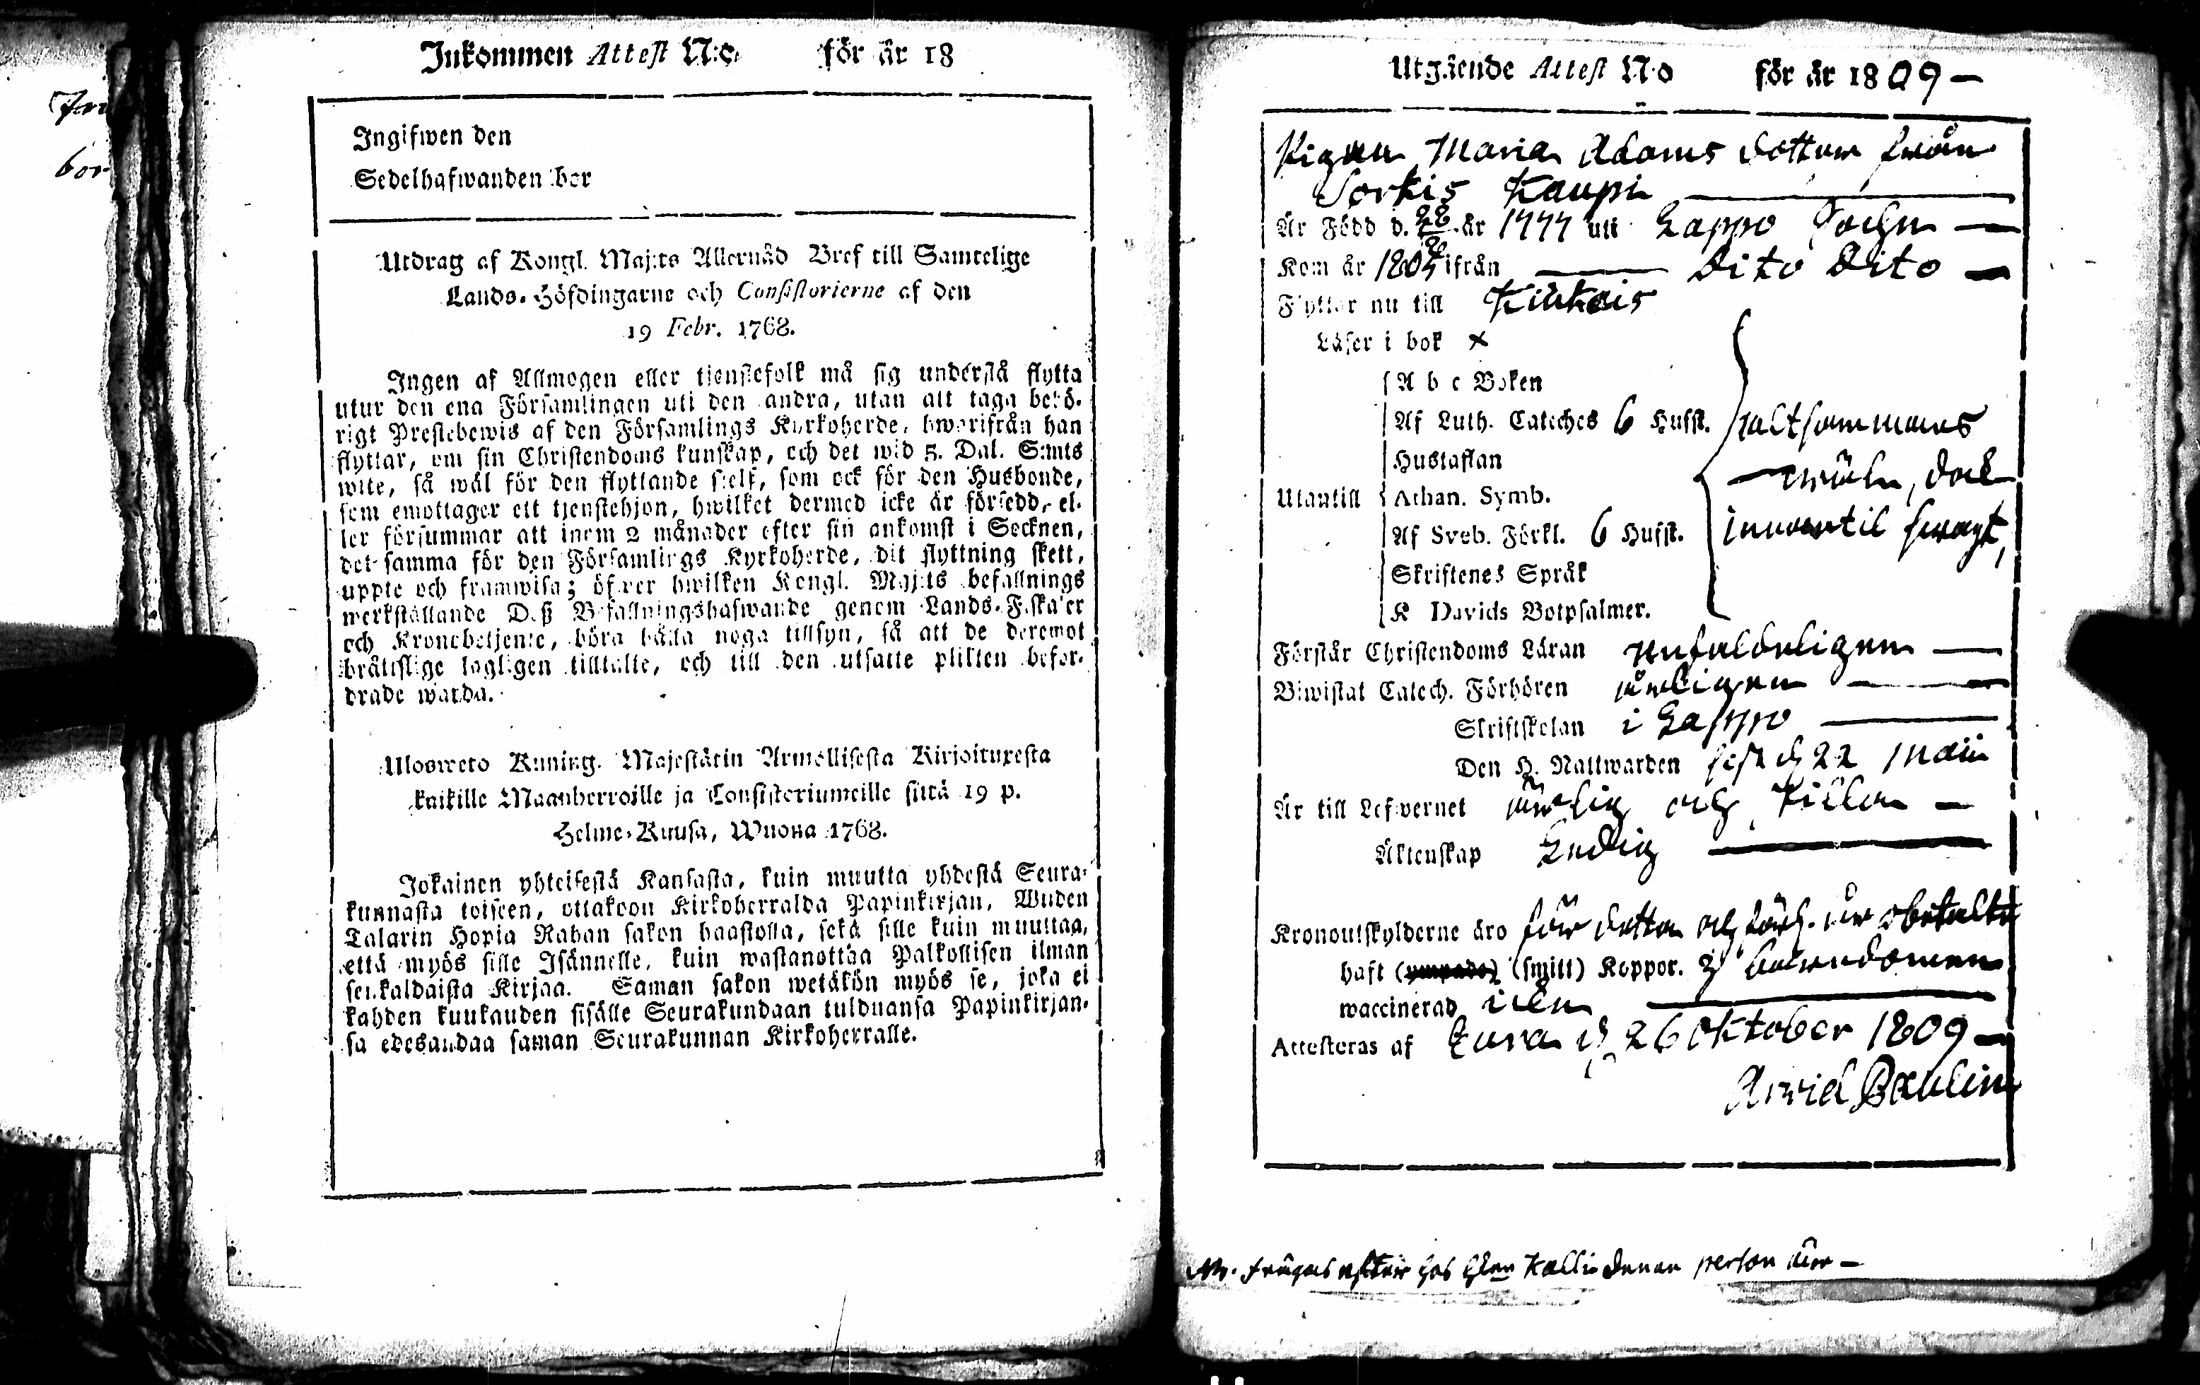 Inkommen Attest N:o för år 18
Ingifwen den
Sedelhafwanden bor
Utdrag af Kongl. Maj:ts Allernåd Bref till Samtelige
Lands-Höfdingarne och Consistorierne af den
19 Febr. 1768.
Ingen af Allmogen eller tjenstefolk må sig understå flytta
utur den ena Församlingen uti den andra, utan att taga behö-
rigt Prestebewis af den Församlings Kyrkoherde, hwarifrån han
flyttar, om sin Christendoms kunskap, och det wid 5. Dal. S:mts
wite, så wäl för den flyttande sjelf, som ock för den Husbonde,
som emottager ett tjenstehjon, hwilket dermed icke är försedd, el-
ler försummar att inom 2 månader efter sin ankomst i Socknen,
det samma för den Församlings Kyrkoherde, dit flyttning skett,
uppte och framwisa; öfwer hwilken Kongl. Maj:ts befallnings
werkställande Deß Befallningshafwande genom Lands-Fiskaler
och Kronobetjente, böra hålla noga tillsyn, så att de deremot
bråttslige lagligen tilltalte, och till den utsatte plikten befor-
drade warda.
Uloswето Kuning. Majestätin Armollisesta Kirjoituxesta
kaikille Maanherroille ja Consistoriumeille siitä 19 p.
Helme-Kuusa, Wuona 1768.
Jokainen yhteisestä Kansasta, kuin muutta yhdestä Seura-
kunnasta toiseen, ottakoon Kirkoherralda Papinkirjan, Wiiden
Talarin Hopia Rahan sakon haastolla, sekä sille kuin muuttaa,
että myös sille Isännelle, kuin wastanottaa Palkollisen ilman
senkaldaista Kirjaa. Saman sakon wetäkön myös se, joka ei
kahden kuukauden sisälle Seurakundaan tulduansa Papinkirjan-
sa edesandaa saman Seurakunnan Kirkoherralle.
Utgående Attest N:o för år 1809 —
Pigan Maria Adams dotter från
Sorkis Kaupi
Är Född d. 28 år 1777 uti Lappo Sochn
Kom år 1805 ifrån Dito Dito
Flyttar nu till Kiukais
Läser i bok x
A b c Boken
Af Luth. Cateches 6 Hufst. altsammans
Hustaflan wäl, dock
Utantill Athan. Symb.
Af Sveb. Förkl. 6 Hufst. innantil swagt,
Skriftenes Språk
K Davids Botpsalmer.
Förstår Christendoms Läran enfaldeligen
Biwistat Catech. Förhören årligen
Skriftskolan i Lappo
Den H. Nattwarden sist d 22 Maii
Är till Lefwernet ärlig och stilla
Äktenskap Ledig
Kronoutskylderne äro för detta och förl. år obetalte
haft (ympade) (smitt) Koppor. i barndomen
waccinerad
Attesteras af Eura d 26 Oktober 1809
Arvid Paulin